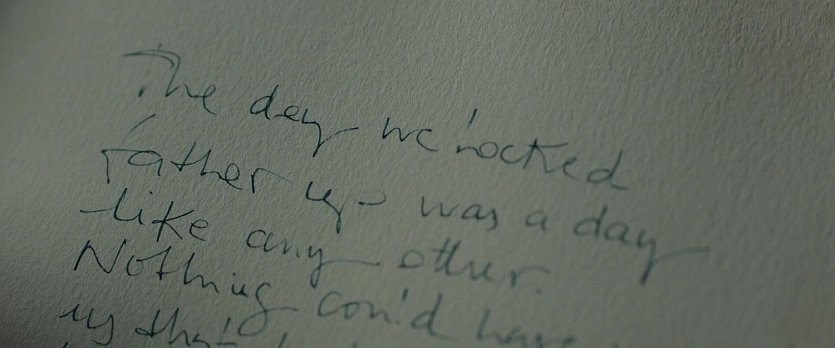 The day we hocked
Father up - was a day
like any other.
Nothing could have
us that